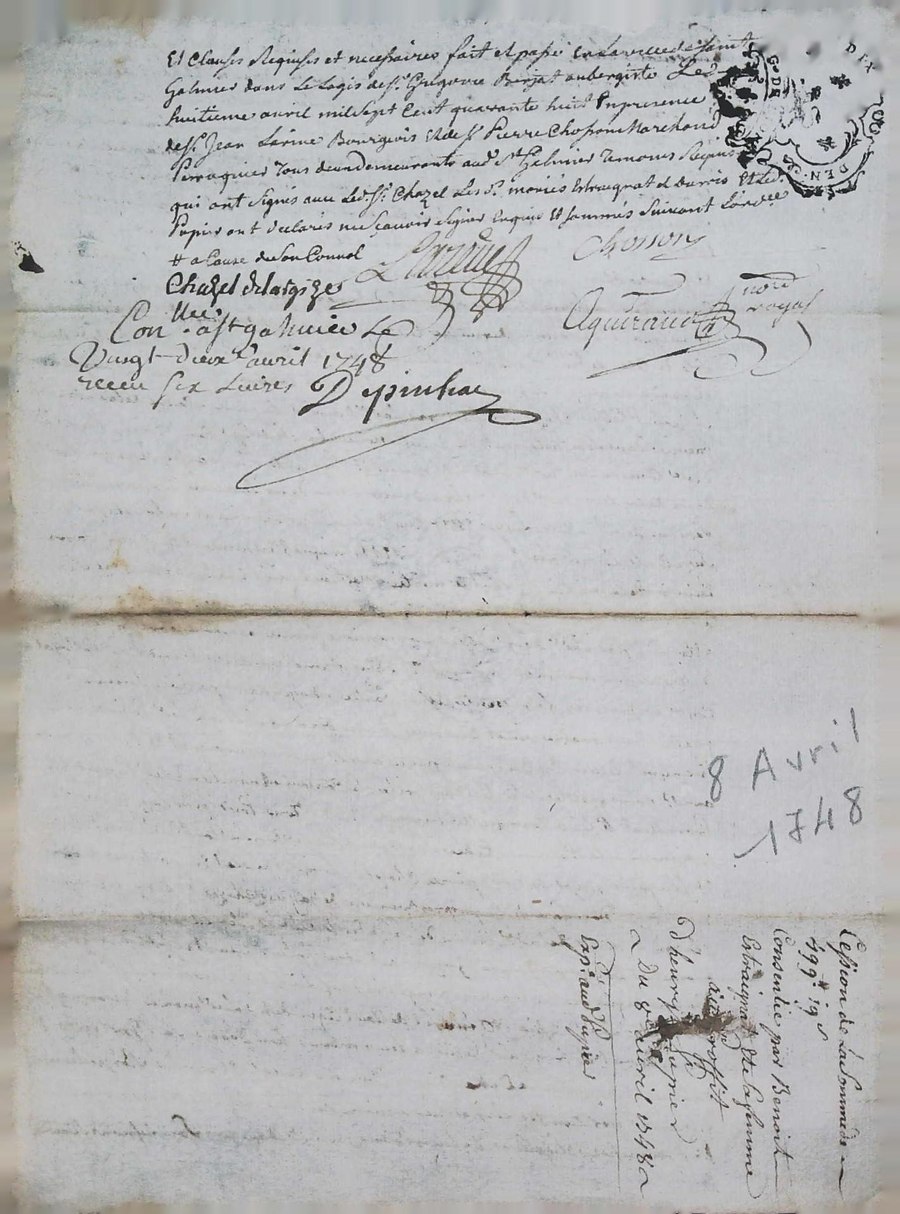 Et Clauses Requises et necessaires fait et passé en la ville de Saint
Galmier dans Le Logis de Sr. Gregoire Borjat aubergiste Le
huitieme avril mil sept Cent quarante huit En presence
de Sr. Jean Larine Bourgeois Et de Sr. Pierre Chosson Marchand
Perruquier Tous deux demeurants aud. St Galmier Temoins Requis
qui ont signés avec Led. Sr. Chazel Les d. mariés Estraignat et
Et Led. Dupin ont declarés ne sçavoir signer Enquis Et sommés suivant Lord.ce
# a Cause de son Connol
Chazel
Larine
Chosson
Aguiraud nore royal
Con. a St galmier Le
Vingt-deux avril 1748
receu six Livres
Depinhac
DIX
DEN.
G. DE
8 Avril
1748
Cession de La Somme de
499# 19s
Consentie par Benoit
Estraignat Et sa femme
au proffit
D'henry Dupin
Du 8e avril 1748
Exp. aud. Dupin